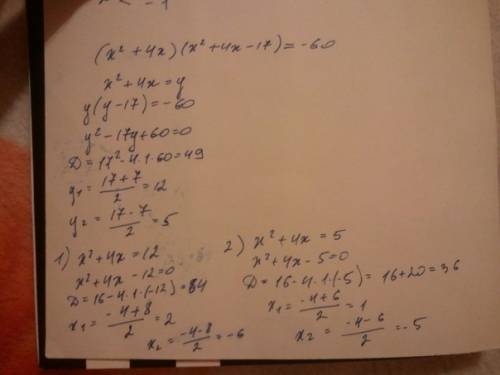 (x² + 4x)(x² + 4x - 17) = -60
x² + 4x = y
y(y - 17) = -60
y² - 17y + 60 = 0
D = 17² - 4·1·60 = 49
y₁ = (17 + 7)/2 = 12
y₂ = (17 - 7)/2 = 5
1) x² + 4x = 12
x² + 4x - 12 = 0
D = 16 - 4·1·(-12) = 64
x₁ = (-4 + 8)/2 = 2
x₂ = (-4 - 8)/2 = -6
2) x² + 4x = 5
x² + 4x - 5 = 0
D = 16 - 4·1·(-5) = 16 + 20 = 36
x₁ = (-4 + 6)/2 = 1
x₂ = (-4 - 6)/2 = -5